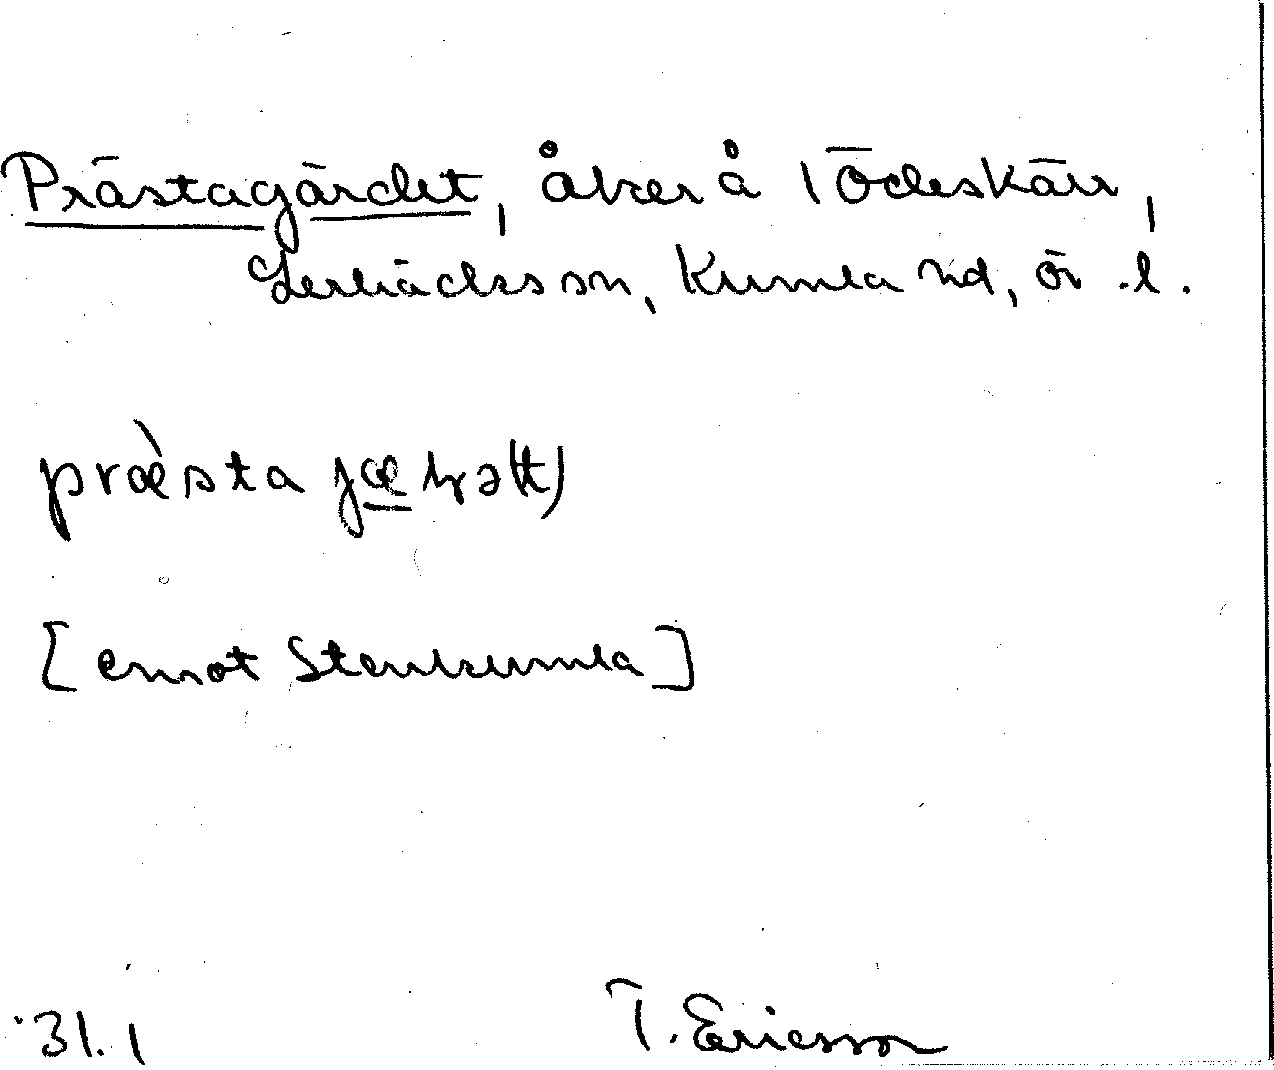 Prästagärdet, åker å 1 Ödeskärr,
Lerbäcks sn, Kumla hd, ör. l.
præ̀sta
[emot Stenkumla]
31.1 T. Ericsson